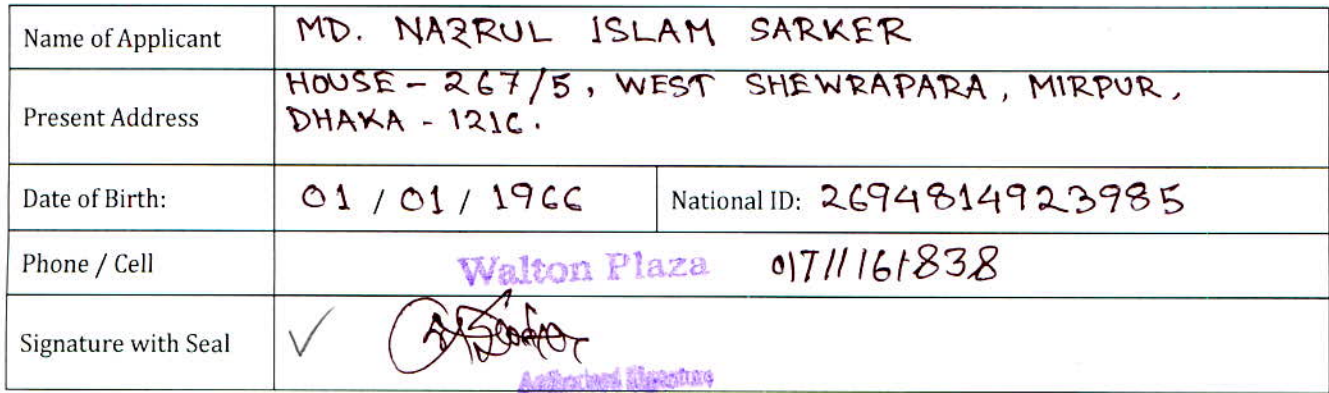 Name of Applicant MD. NAZRUL ISLAM SARKER
Present Address HOUSE - 267/5, WEST SHEWRAPARA, MIRPUR,
DHAKA - 1216.
Date of Birth: 01 / 01 / 1966 National ID: 2694814923985
Phone / Cell Walton Plaza 01711161838
Signature with Seal
Authorised Signature